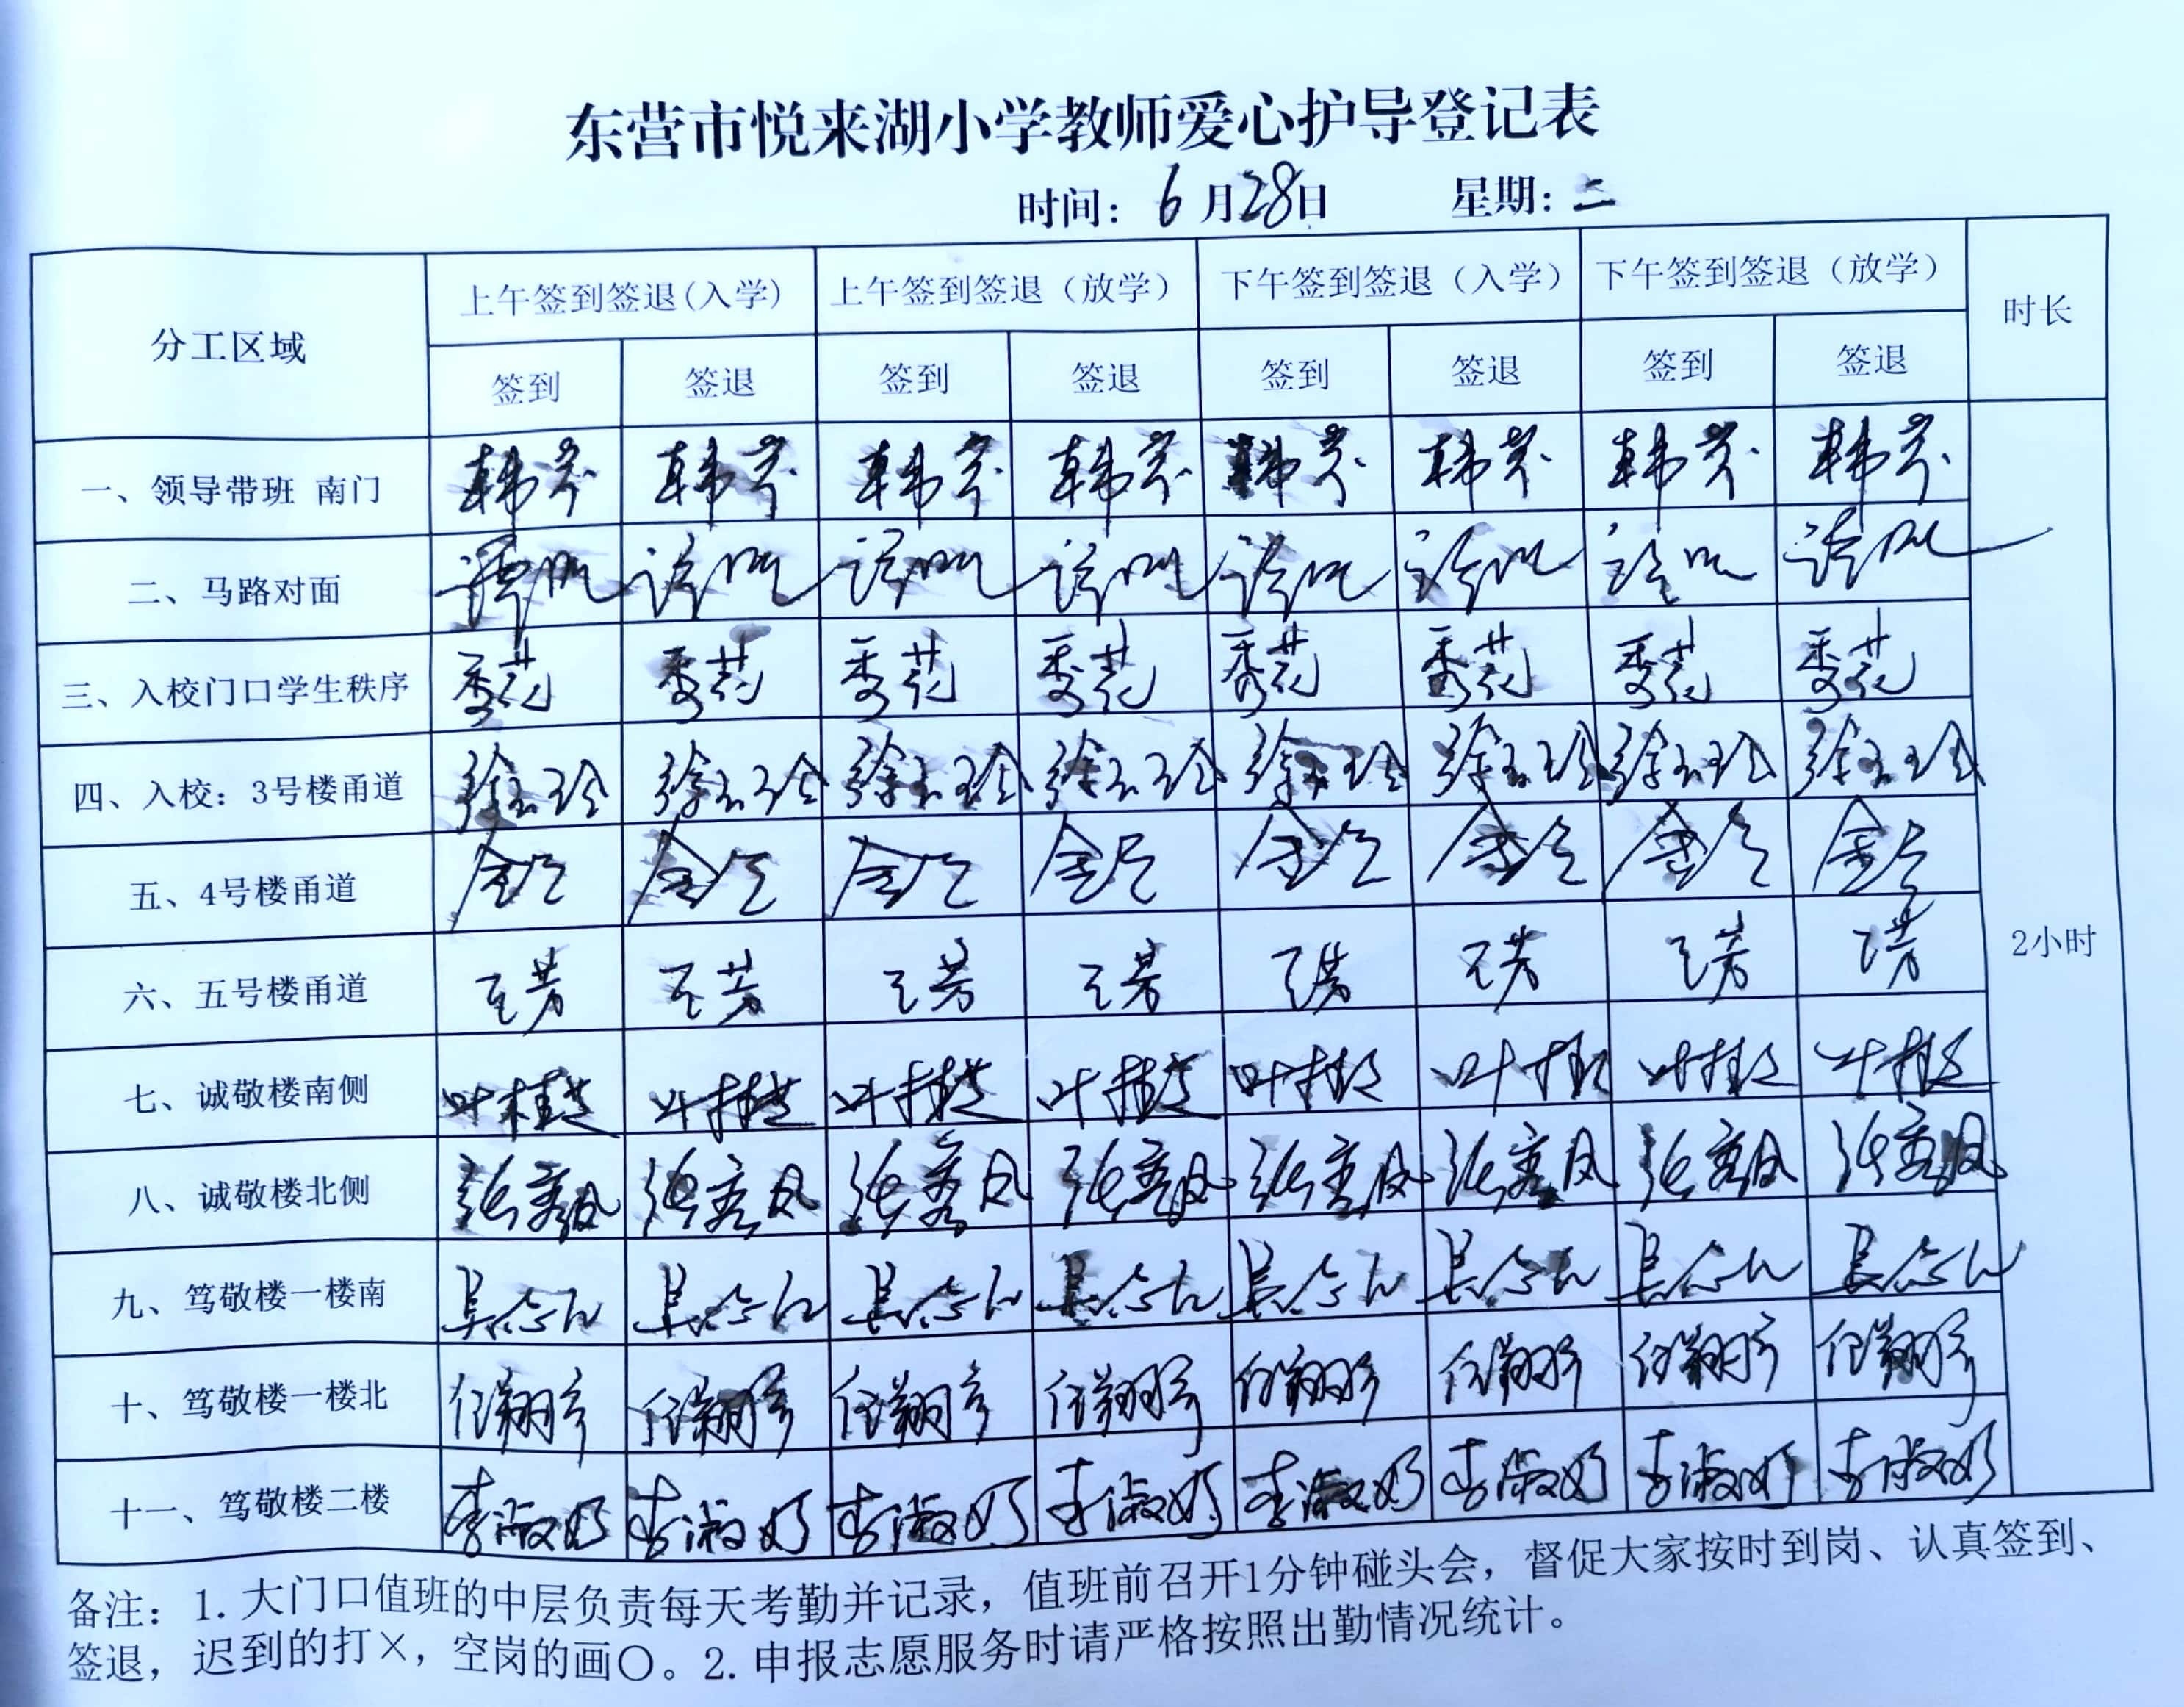 东营市悦来湖小学教师爱心护导登记表
时间：6月28日 星期：二
分工区域 上午签到签退(入学) 上午签到签退（放学） 下午签到签退（入学） 下午签到签退（放学） 时长
签到 签退 签到 签退 签到 签退 签到 签退
一、领导带班 南门 韩芬 韩芬 韩芬 韩芬 韩芬 韩芬 韩芬 韩芬
二、马路对面
三、入校门口学生秩序 秀花 秀花 秀花 秀花 秀花 秀花 秀花 秀花
四、入校：3号楼甬道 徐玉玲 徐玉玲 徐玉玲 徐玉玲 徐玉玲 徐玉玲 徐玉玲 徐玉玲
五、4号楼甬道
六、五号楼甬道 王芳 王芳 王芳 王芳 王芳 王芳 王芳 王芳
2小时
七、诚敬楼南侧 叶桂芝 叶桂芝 叶桂芝 叶桂芝 叶桂芝 叶桂芝 叶桂芝 叶桂芝
八、诚敬楼北侧 张秀凤 张秀凤 张秀凤 张秀凤 张秀凤 张秀凤 张秀凤 张秀凤
九、笃敬楼一楼南
十、笃敬楼一楼北 任翔宇 任翔宇 任翔宇 任翔宇 任翔宇 任翔宇 任翔宇 任翔宇
十一、笃敬楼二楼 李淑娟 李淑娟 李淑娟 李淑娟 李淑娟 李淑娟 李淑娟 李淑娟
备注：1.大门口值班的中层负责每天考勤并记录，值班前召开1分钟碰头会，督促大家按时到岗、认真签到、
签退，迟到的打×，空岗的画○。2.申报志愿服务时请严格按照出勤情况统计。